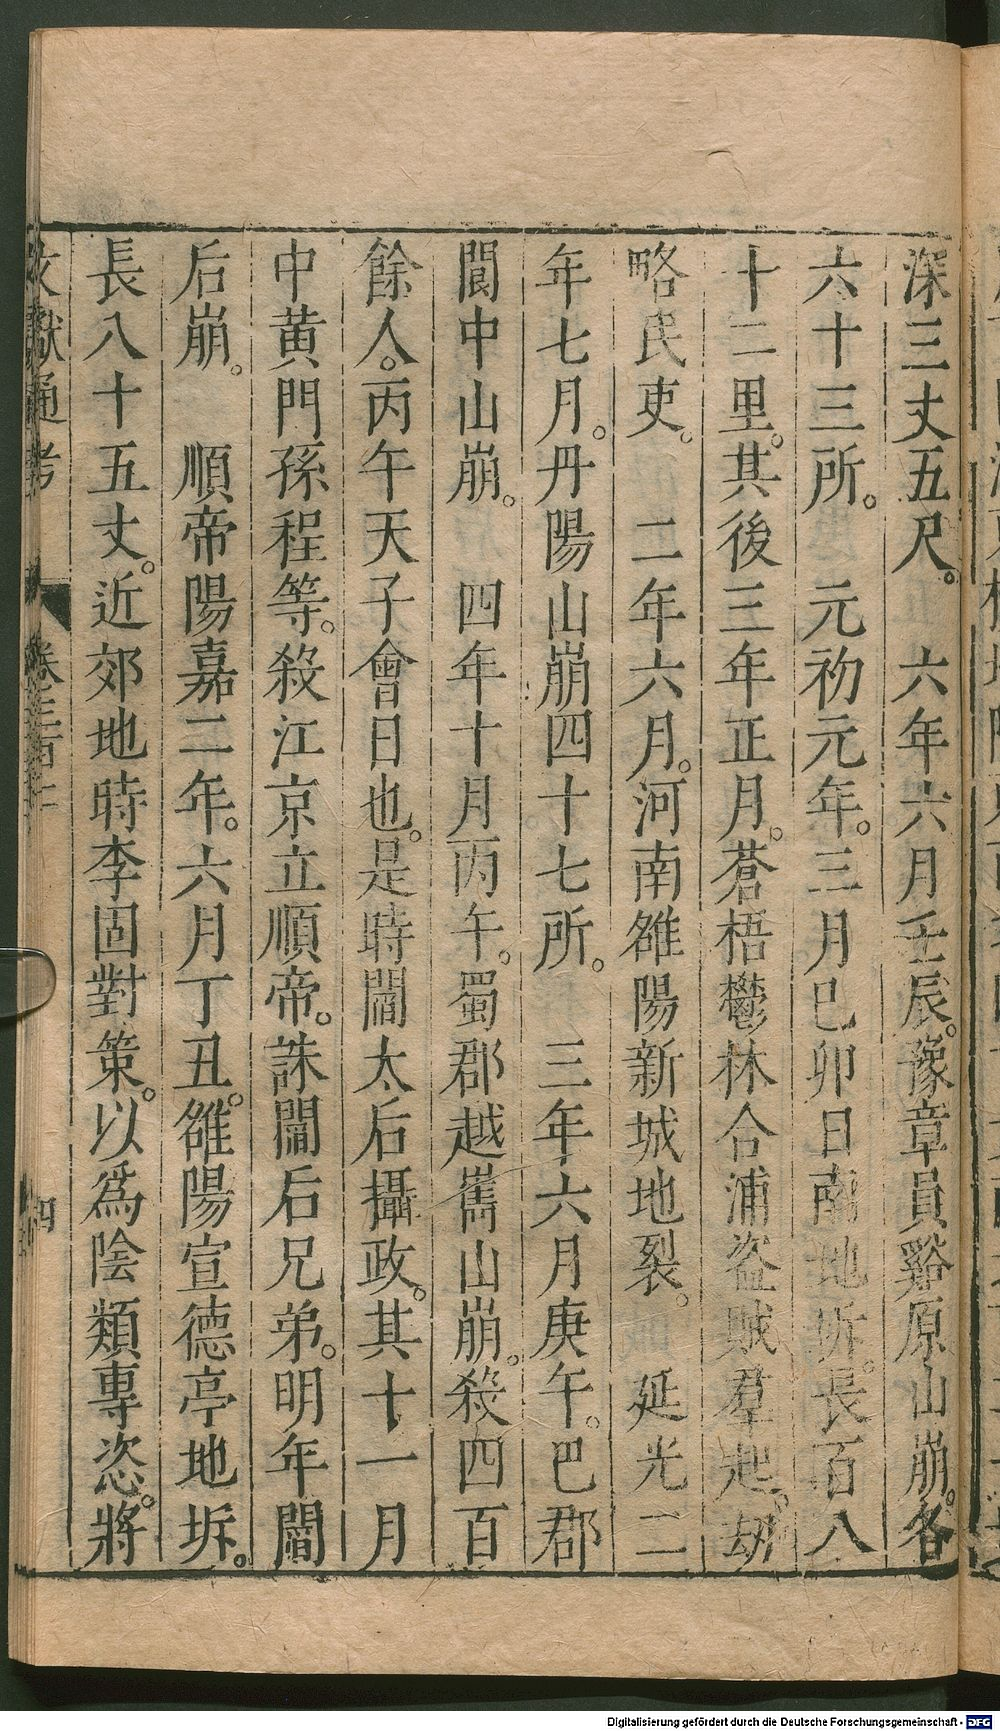 深三丈五尺。　六年六月壬辰。豫章員谿原山崩。各
六十三所。　元初元年。三月巳卯日南地坼。長百八
十二里。其後三年正月。蒼梧鬱林合浦盜賊羣起。劫
略民吏。　二年六月。河南雒陽新城地裂。　延光二
年七月。丹陽山崩四十七所。　三年六月庚午。巴郡
閬中山崩。　四年十月丙午。蜀郡越巂山崩。殺四百
餘人。丙午天子會日也。是時閻太后攝政。其十一月
中黃門孫程等。殺江京立順帝。誅閻后兄弟。明年閻
后崩。　順帝陽嘉二年。六月丁丑。雒陽宣德亭地坼。
長八十五丈。近郊地時李固對策。以爲陰類專恣。將
文獻通考
四
Digitalisierung gefördert durch die Deutsche Forschungsgemeinschaft - DFG